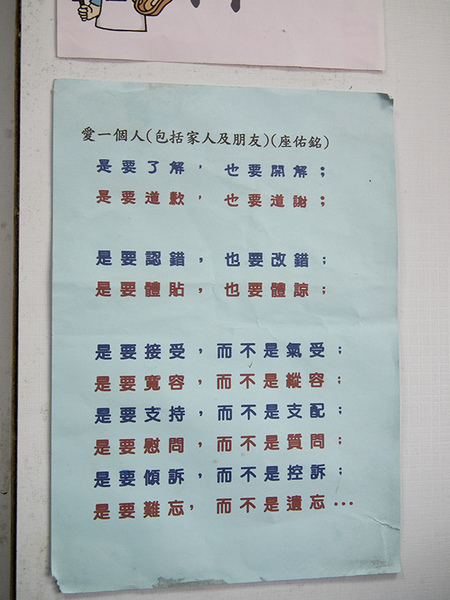 愛一個人(包括家人及朋友)(座佑銘)
是要了解，也要開解；
是要道歉，也要道謝；
是要認錯，也要改錯；
是要體貼，也要體諒；
是要接受，而不是氣受；
是要寬容，而不是縱容；
是要支持，而不是支配；
是要慰問，而不是質問；
是要傾訴，而不是控訴；
是要難忘，而不是遺忘...